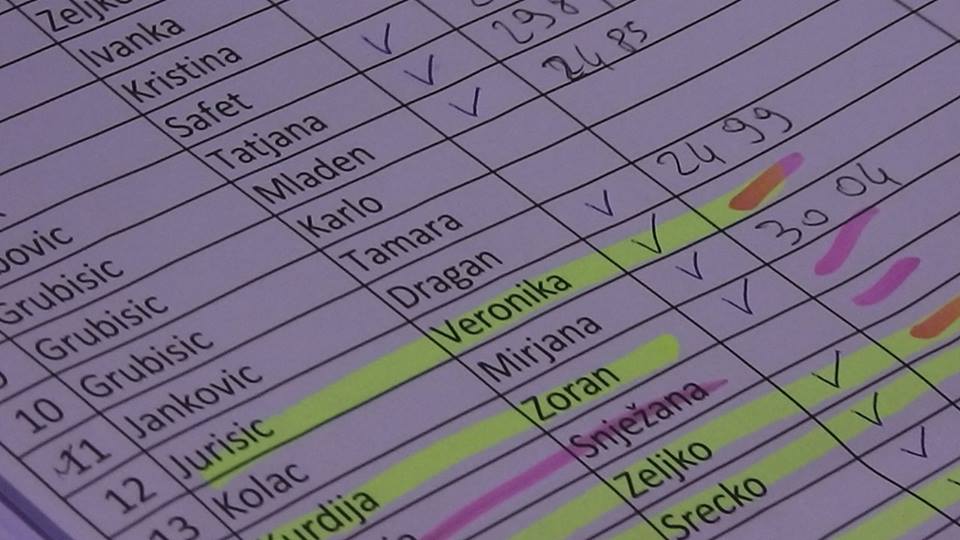 Zeljko
Ivanka
Kristina
Safet ✓
ovic Tatjana ✓ 298
Grubisic Mladen ✓ 24 85
Grubisic Karlo
10 Grubisic Tamara
11 Jankovic Dragan ✓ 24 99
12 Jurisic Veronika ✓
13 Kolac Mirjana ✓ 30 04
Kurdija Zoran ✓
Snježana
Zeljko ✓
Srecko ✓
✓